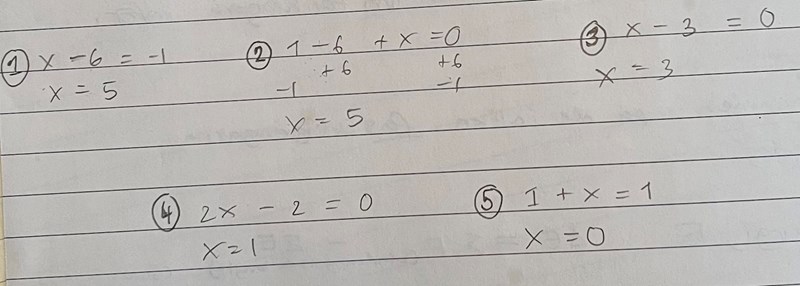 ① x - 6 = -1
x = 5
② 1 - 6 + x = 0
+6 +6
-1 -1
x = 5
③ x - 3 = 0
x = 3
④ 2x - 2 = 0
x = 1
⑤ 1 + x = 1
x = 0